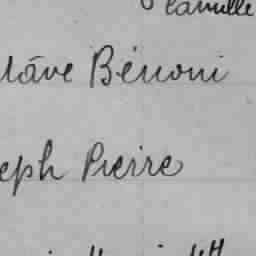 Camille
tâve Bénoni
eph Pierre